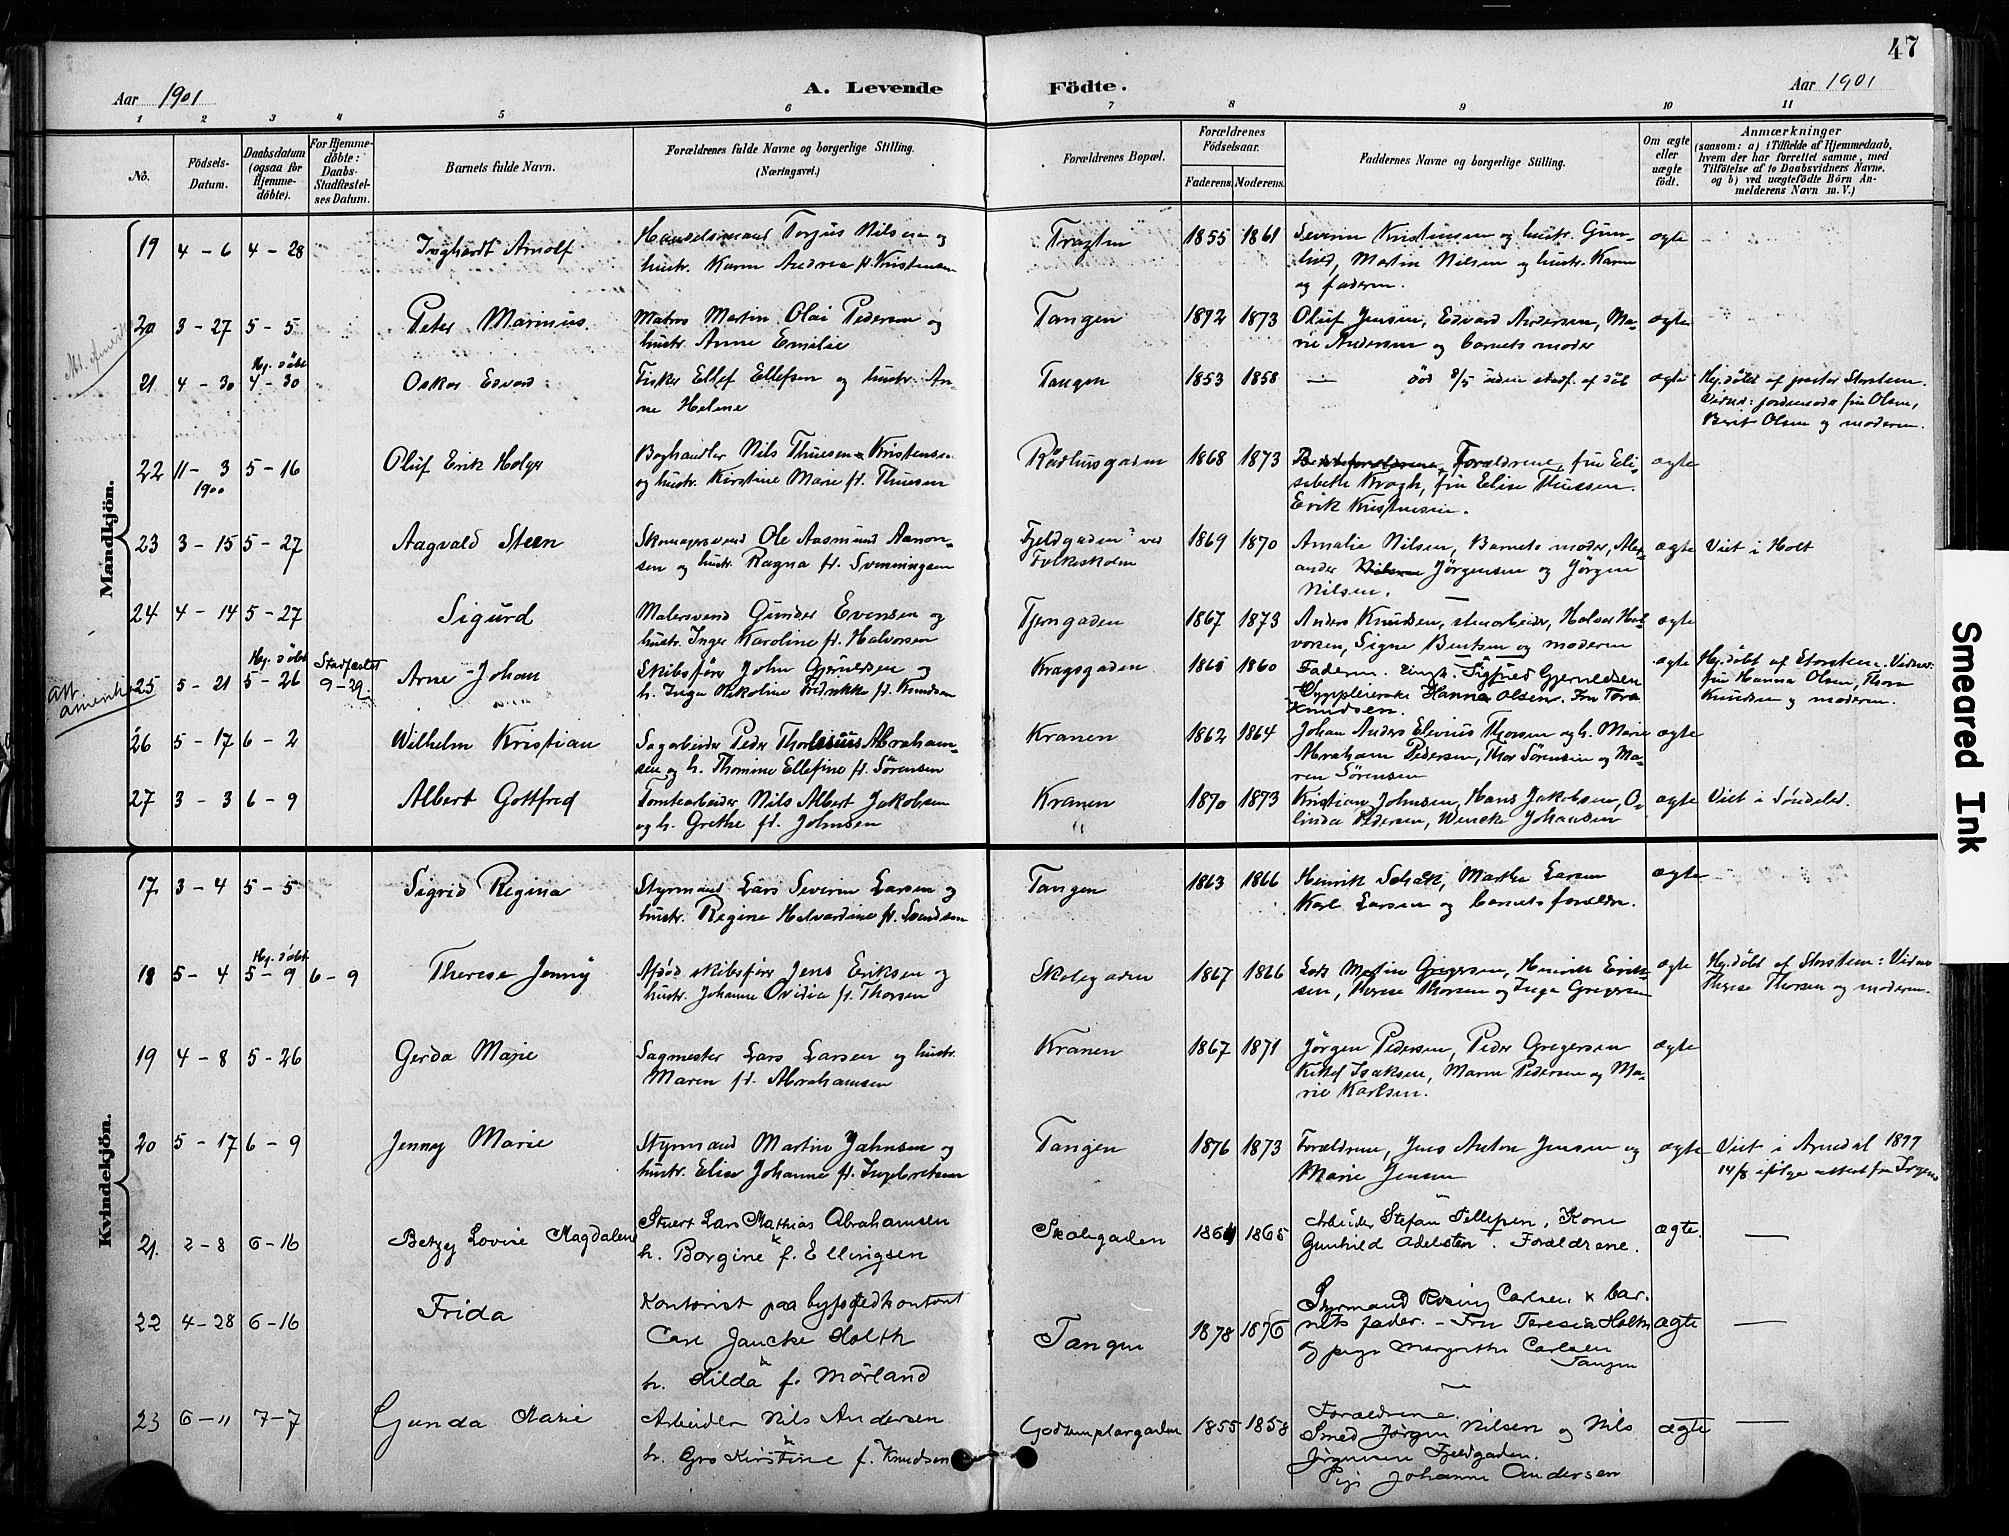 47
Aar 1901 A. Levende Födte. Aar 1901
1 2 3 4 5 6 7 8 9 10 11
No. Födsels-Datum. Daabsdatum (ogsaa for Hjemmedöbte). For Hjemmedöbte: Daabs-Stadfæstelses Datum. Barnets fulde Navn. Forældrenes fulde Navne og borgerlige Stilling. (Næringsvei.) Forældrenes Bopæl. Forældrenes Födselsaar. Faderens. Moderens. Faddernes Navne og borgerlige Stilling. Om ægte eller uægte födt. Anmærkninger (saasom: a) i Tilfælde af Hjemmedaab, hvem der har forrettet samme, med Tilföielse af to Daabsvidners Navne, og b) ved uægtefödte Börn Anmelderens Navn m. V.)
Mandkjön.
19 4-6 4-28 Inghardt Arnolf Handelsmand Torjus Nilsen og 1855 1861 Severin Kristensen og hustr. Gun- ægte
hustr. Karen Andrea f. Kristensen hild, Martin Nilsen og hustr. Karen
og faderen.
20 3-27 5-5 Peter Marinus. Matros Martin Olai Pedersen og Tangen 1872 1873 Oluf Jensen, Edvard Andersen, Ma- ægte
hustr. Anne Emilie rie Andersen og barnets moder
21 4-30 Hj. døbt 4-30 Oskar Edvard Fisker Ellef Ellefsen og hustr. An- Tangen 1853 1858 — død 8/5 uden stadf. af døb ægte Hj. døbt af pastor Storsteen.
ne Helene Vidner: jordemoder fru Olsen,
Berit Olsen og moderen.
22 11-3 1900 5-16 Oluf Erik Holger Boghandler Nils Thuesen Kristensen Rådhusgaden 1868 1873 Forældrene, fru Eli- ægte
og hustr. Kirstine Marie f. Thuesen sabeth Kragh, fru Elise Thuesen.
Erik Kristensen.
23 3-15 5-27 Aagvald Steen Skomagersvend Ole Aasmund Aanon- Fjeldgaden ved 1869 1870 Amalie Nilsen, Barnets moder, Alex- ægte Viet i Holt
sen og hustr. Ragna f. Svenningsen Folkeskolen ander Nilsen Jørgensen og Jørgen
Nilsen.
24 4-14 5-27 Sigurd Malersvend Gunder Evensen og Tjerngaden 1867 1873 Anders Knudsen, stenarbeider, Halvor Hal- ægte
hustr. Inger Karoline f. Halvorsen vorsen, Signe Bentsen og moderen
25 5-21 Hj. døbt 5-26 Stadfæstet 9-29 Arne Johan Skibsfører John Gjeruldsen og Kragsgaden 1865 1860 Faderen. Sigfred Gjeruldsen ægte Hj. døbt af Storsteen. Vidner:
h. Inga Nikoline Fredrikke f. Knudsen Sygepleierske Hanna Olsen. Fru Tora fru Hanna Olsen, Thora
Knudsen. Knudsen og moderen.
26 5-17 6-2 Wilhelm Kristian Sagarbeider Peder Abraham- Kranen 1862 1864 Johan Anders Elevius Thorsen og h. Marie ægte
sen og h. Thomine Ellefine f. Sørensen Abraham Pedersen, Thor Sørensen og Ma-
ren Sørensen
27 3-3 6-9 Albert Gottfred Tomtearbeider Nils Albert Jakobsen Kranen 1870 1873 Kristian Johnsen, Hans Jakobsen, O- ægte Viet i Søndeled.
og h. Grethe f. Johnsen linda Pedersen, Wencke Johansen
Kvindekjön.
17 3-4 5-5 Sigrid Regina Styrmand Lars Severin Larsen og Tangen 1863 1866 Henrik Schak, Martha Larsen ægte
hustr. Regine Halvardine f. Svendsen Karl Larsen og barnets forældre.
18 5-4 Hj. døbt 5-9 6-9 Therese Jenny Afdød skibsfører Jens Eriksen og Skolegaden 1867 1866 Lods Martin Gregersen, Henrik Erik- ægte Hj. døbt af Storsteen: Vidner
hustr. Johanne Ovidia f. Thorsen sen, Therese Thorsen og Inga Gregersen Therese Thorsen og moderen.
19 4-8 5-26 Gerda Marie Sagmester Lars Larsen og hustr. Kranen 1867 1871 Jörgen Pedersen, Peder Gregersen ægte
Maren f. Abrahamsen Kittel Isaksen, Maren Pedersen og Ma-
rie Karlsen.
20 5-17 6-9 Jenny Marie Styrmand Martin Jahnsen og Tangen 1876 1873 Forældrene, Jens Anton Jensen og ægte Viet i Arendal 1899
hustr. Elise Johanne f. Ingebretsen Marie Jensen 14/8 ifølge attest fra
21. 2-8 6-16 Betzey Lovise Magdalene Stuert Lars Mathias Abrahamsen Skolegaden 1864 1865 Arbeider Stefan Tellefsen, Kone ægte. —
h. Borgine f. Ellingsen Gunhild Adelsten. Forældrene.
22 4-28 6-16 Frida Kontorist paa byfogedkontoret Tangen 1878 1876 Styrmand Rosing Carlsen, bar- ægte —
Carl Jancke Holth nets fader. — Fru Teresia Holth
h. Hilda f. Mørland og pige Margrethe Carlsen
Tangen
23 6-11 7-7 Gunda Marie Arbeider Nils Andersen Godtemplargaden 1855 1858 Forældrene. ægte —
h. Gro Kirstine f. Knudsen Smed Jörgen Nilsen og Nils
Jörgensen Fjeldgaden.
Pige Johanne Andersen
Smeared Ink